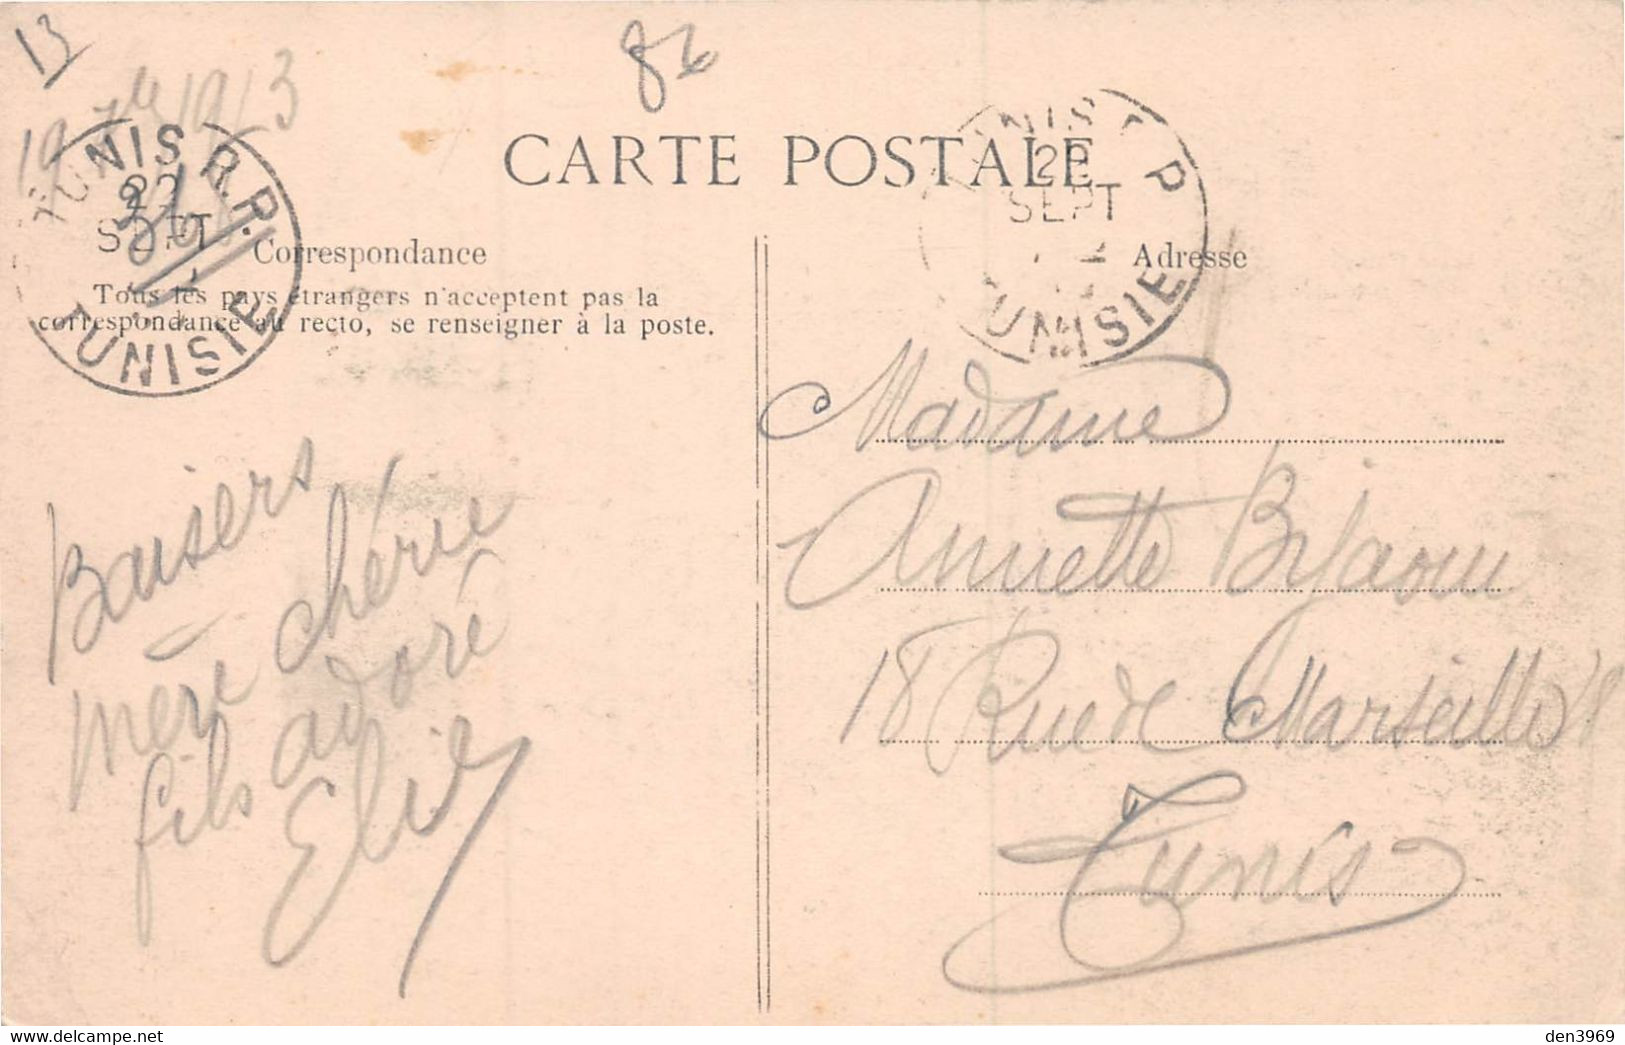 13
86
19 7bre 1913
TUNIS R.P.
22
SEPT
TUNISIE
CARTE POSTALE
TUNIS R P
22
SEPT
TUNISIE
Correspondance
Adresse
Tous les pays étrangers n'acceptent pas la
correspondance au recto, se renseigner à la poste.
Baisers
mère chérie
fils adoré
Elie
Madame
Annette Bijaoui
18 Rue de Marseille 18
Tunis
den3969